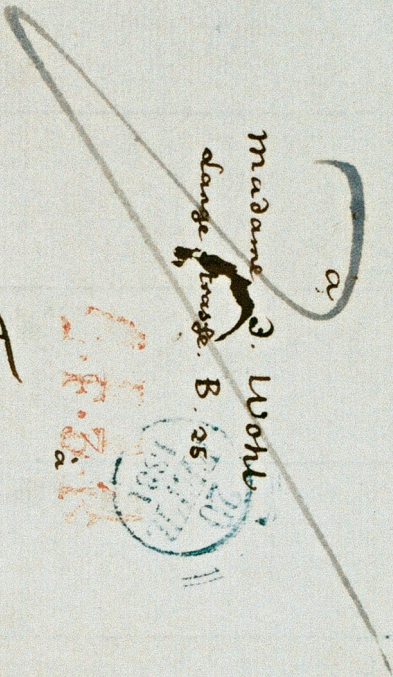 à
Madame J. Wohl
Lange Strasse. B. 25
L.F.3.R
à